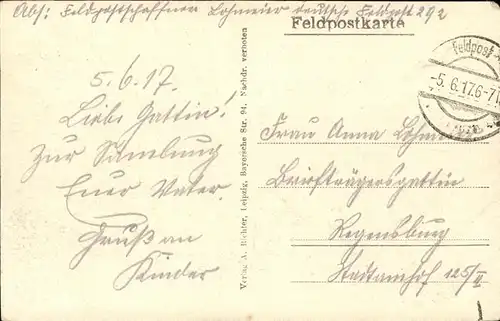 Abs: Feldpostschaffner Lohmeier deutsche Feldpost 292
Feldpostkarte
Feldpost
-5.6.17.6-7
5.6.17.
Liebe Gattin!
Zur Samlung
Euer Vater.
Gruß an
Kinder
Verlag A. Richter, Leipzig, Bayersche Str. 94. Nachdr. verboten
Frau Anna Lohmeier
Briefträgersgattin
Regensburg
Stadtamhof 125/II